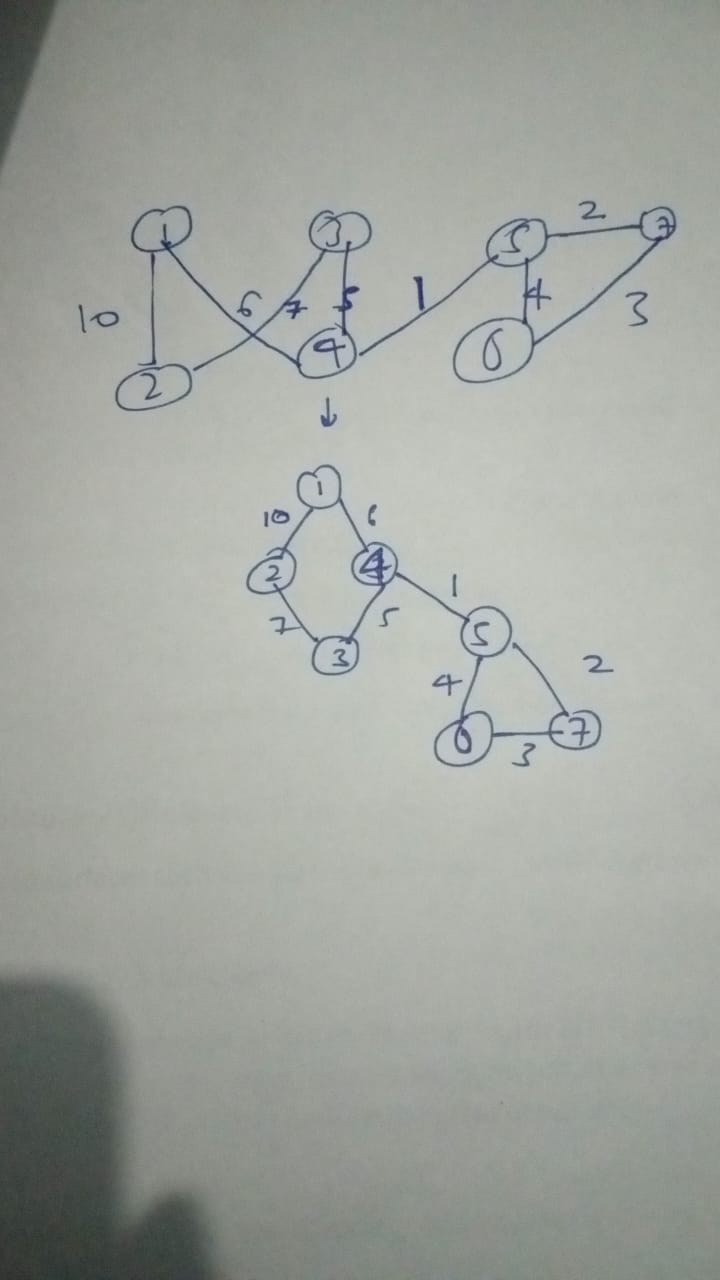 1 3 5 2 7
10 6 7 5 1 4 3
2 4 6
↓
1
10 6
2 4 1
7 5 5
3 4 2
6 3 7